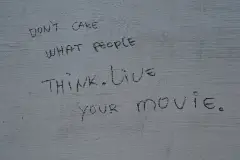 DON'T CARE
WHAT PEOPLE
THINK. LIVE
YOUR MOVIE.